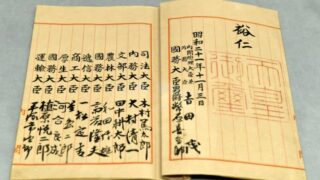 裕仁
天皇御璽
昭和二十一年十一月三日
内閣總理大臣兼
外務大臣
吉田茂
國務大臣男爵幣原喜重郎
司法大臣 木村篤太郎
内務大臣 大村清一
文部大臣 田中耕太郎
農林大臣 和田博雄
國務大臣 斎藤隆夫
遞信大臣 一松定吉
商工大臣 星島二郎
厚生大臣 河合良成
國務大臣 植原悦二郎
運輸大臣 平塚常次郎